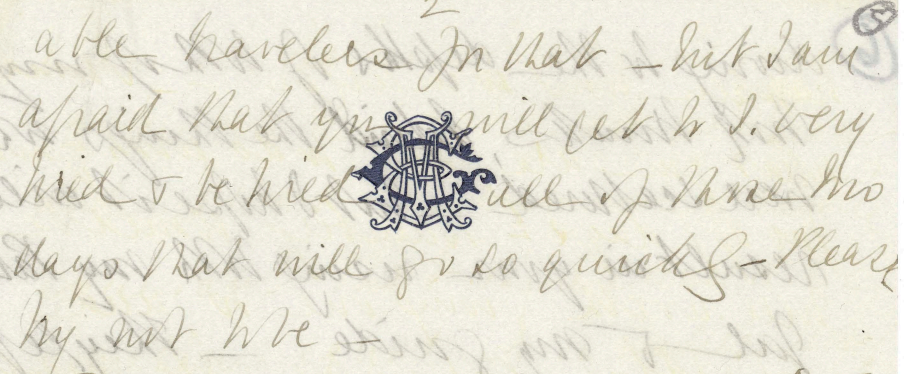 2
5
able travelers for that - but I am
afraid that you will get to S. very
tired & be tired all of those two
days that will go so quickly - Please
try not to be -